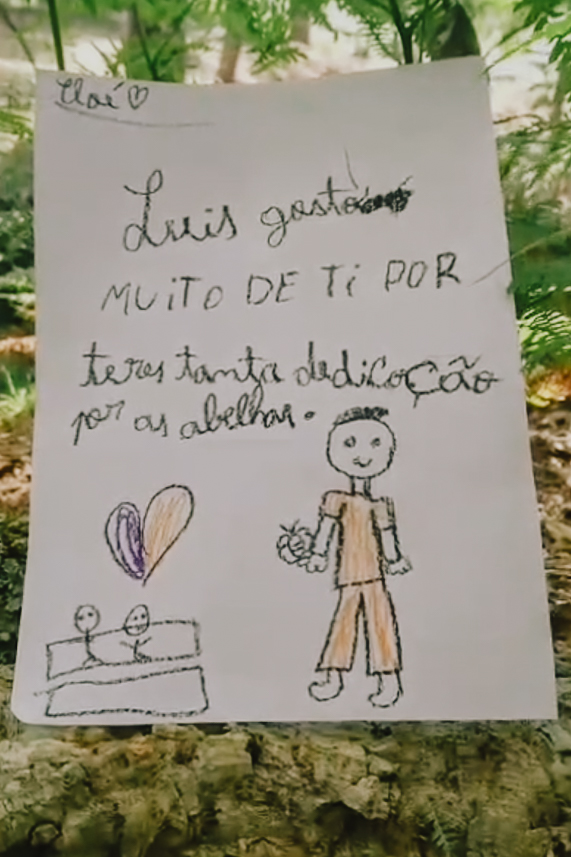 Luis gosto
MUITO DE Ti POR
teres tanta dedicação
por as abelhas.